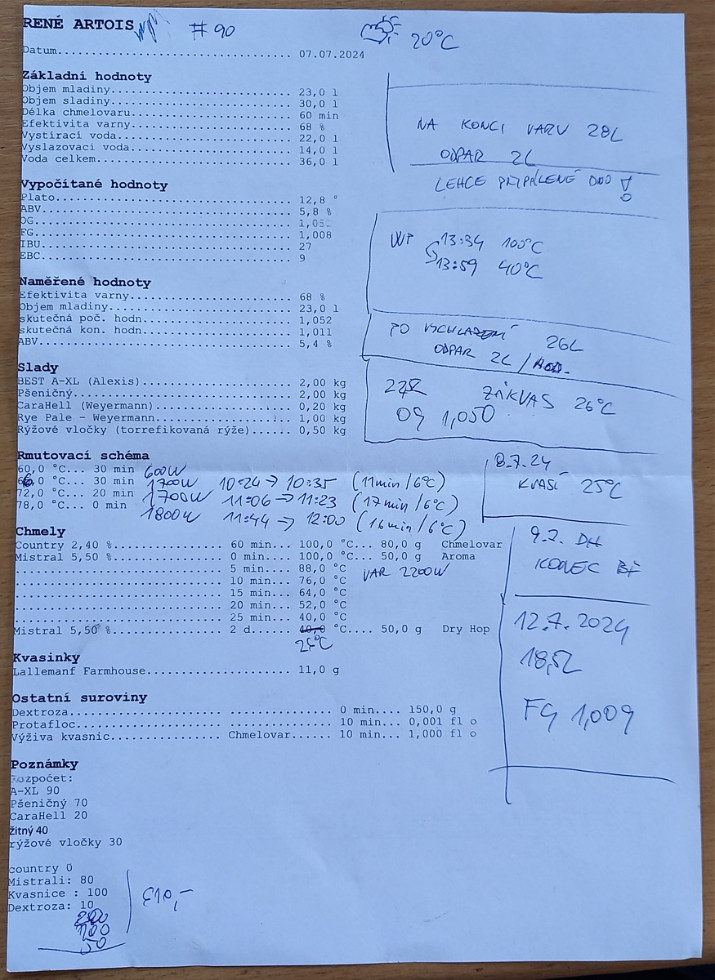 RENÉ ARTOIS # 90 20°C
Datum................................. 07.07.2024
Základní hodnoty
Objem mladiny.......................... 23,0 l
Objem sladiny.......................... 30,0 l
Délka chmelovaru....................... 60 min
Efektivita varny....................... 68 %
Vystírací voda......................... 22,0 l
Vyslazovací voda....................... 14,0 l
Voda celkem............................ 36,0 l
NA KONCI VARU 28L
ODPAR 2L
LEHCE PŘIPÁLENÉ DNO !
Vypočítané hodnoty
Plato.................................. 12,8 °
ABV.................................... 5,8 %
OG..................................... 1,052
FG..................................... 1,008
IBU.................................... 27
EBC.................................... 9
WP 13:34 100°C
13:59 40°C
Naměřené hodnoty
Efektivita varny....................... 68 %
Objem mladiny.......................... 23,0 l
skutečná poč. hodn..................... 1,052
skutečná kon. hodn..................... 1,011
ABV.................................... 5,4 %
PO VSCHLAZENÍ 26L
ODPAR 2L / HOD.
Slady
BEST A-XL (Alexis)..................... 2,00 kg
Pšeničný............................... 2,00 kg
CaraHell (Weyermann)................... 0,20 kg
Rye Pale - Weyermann................... 1,00 kg
Rýžové vločky (torrefikovaná rýže)...... 0,50 kg
ZÁKVAS 26°C
OG 1,050
Rmutovací schéma
60,0 °C... 30 min 600W
66,0 °C... 30 min 1700W 10:24 → 10:35 (11min/6°C)
72,0 °C... 20 min 1700W 11:06 → 11:23 (17min/6°C)
78,0 °C... 0 min 1800W 11:44 → 12:00 (16min/6°C)
8.7.24
KVASÍ 25°C
Chmely
Country 2,40 %................ 60 min... 100,0 °C... 80,0 g Chmelovar
Mistral 5,50 %................ 0 min.... 100,0 °C... 50,0 g Aroma
.............................. 5 min... 88,0 °C VAR 2200W
.............................. 10 min... 76,0 °C
.............................. 15 min... 64,0 °C
.............................. 20 min... 52,0 °C
.............................. 25 min... 40,0 °C
Mistral 5,50 %................ 2 d...... 40,0 °C.... 50,0 g Dry Hop
25°C
9.7. DH
KONEC BF
Kvasinky
Lallemanf Farmhouse.................... 11,0 g
12.7.2024
18,5L
FG 1,009
Ostatní suroviny
Dextroza..................... ............... 0 min... 150,0 g
Protafloc.................... .............. 10 min... 0,001 fl o
Výživa kvasnic............... Chmelovar..... 10 min... 1,000 fl o
Poznámky
Rozpočet:
A-XL 90
Pšeničný 70
CaraHell 20
žitný 40
rýžové vločky 30
country 0
Mistrali: 80
Kvasnice : 100
Dextroza: 10
100
50